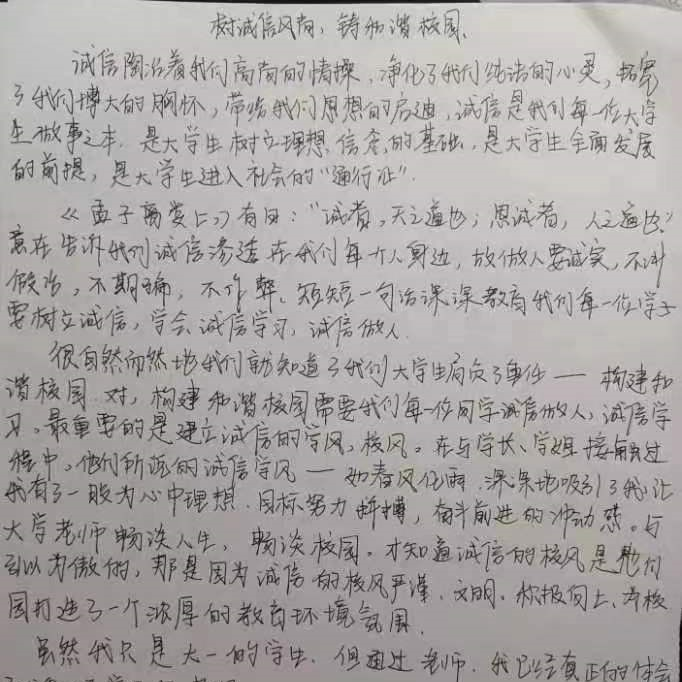 树诚信风尚，铸和谐校园
诚信陶冶着我们高尚的情操，净化了我们纯洁的心灵，拓宽
了我们博大的胸怀，带给我们思想的启迪，诚信是我们每一位大学
生做事之本，是大学生树立理想信念的基础，是大学生全面发展
的前提，是大学生进入社会的“通行证”.
《孟子离娄上》有曰：“诚者，天之道也；思诚者，人之道也.”
意在告诉我们诚信渗透在我们每个人身边，故做人要诚实，不讲
假话，不期骗，不作弊、短短一句话深深教育我们每一位学子
要树立诚信，学会诚信学习，诚信做人.
很自然而然地我们就知道了我们大学生肩负了责任——构建和
谐校园.对，构建和谐校园需要我们每一位同学诚信做人，诚信学
习。最重要的是建立诚信的学风，校风。在与学长、学姐接触过
程中，他们所的诚信学风——如春风化雨，深深地吸引了我，让
我有了一股为心中理想、目标努力拼搏，奋斗前进的冲动感。与
大学老师畅谈人生，畅谈校园。才知道诚信的校风是他们
引以为傲的，那是因为诚信的校风严谨、文明、积极向上、为校
园打造了一个浓厚的教育环境氛围.
虽然我只是大一的学生，但通过老师，我已经真正的体会